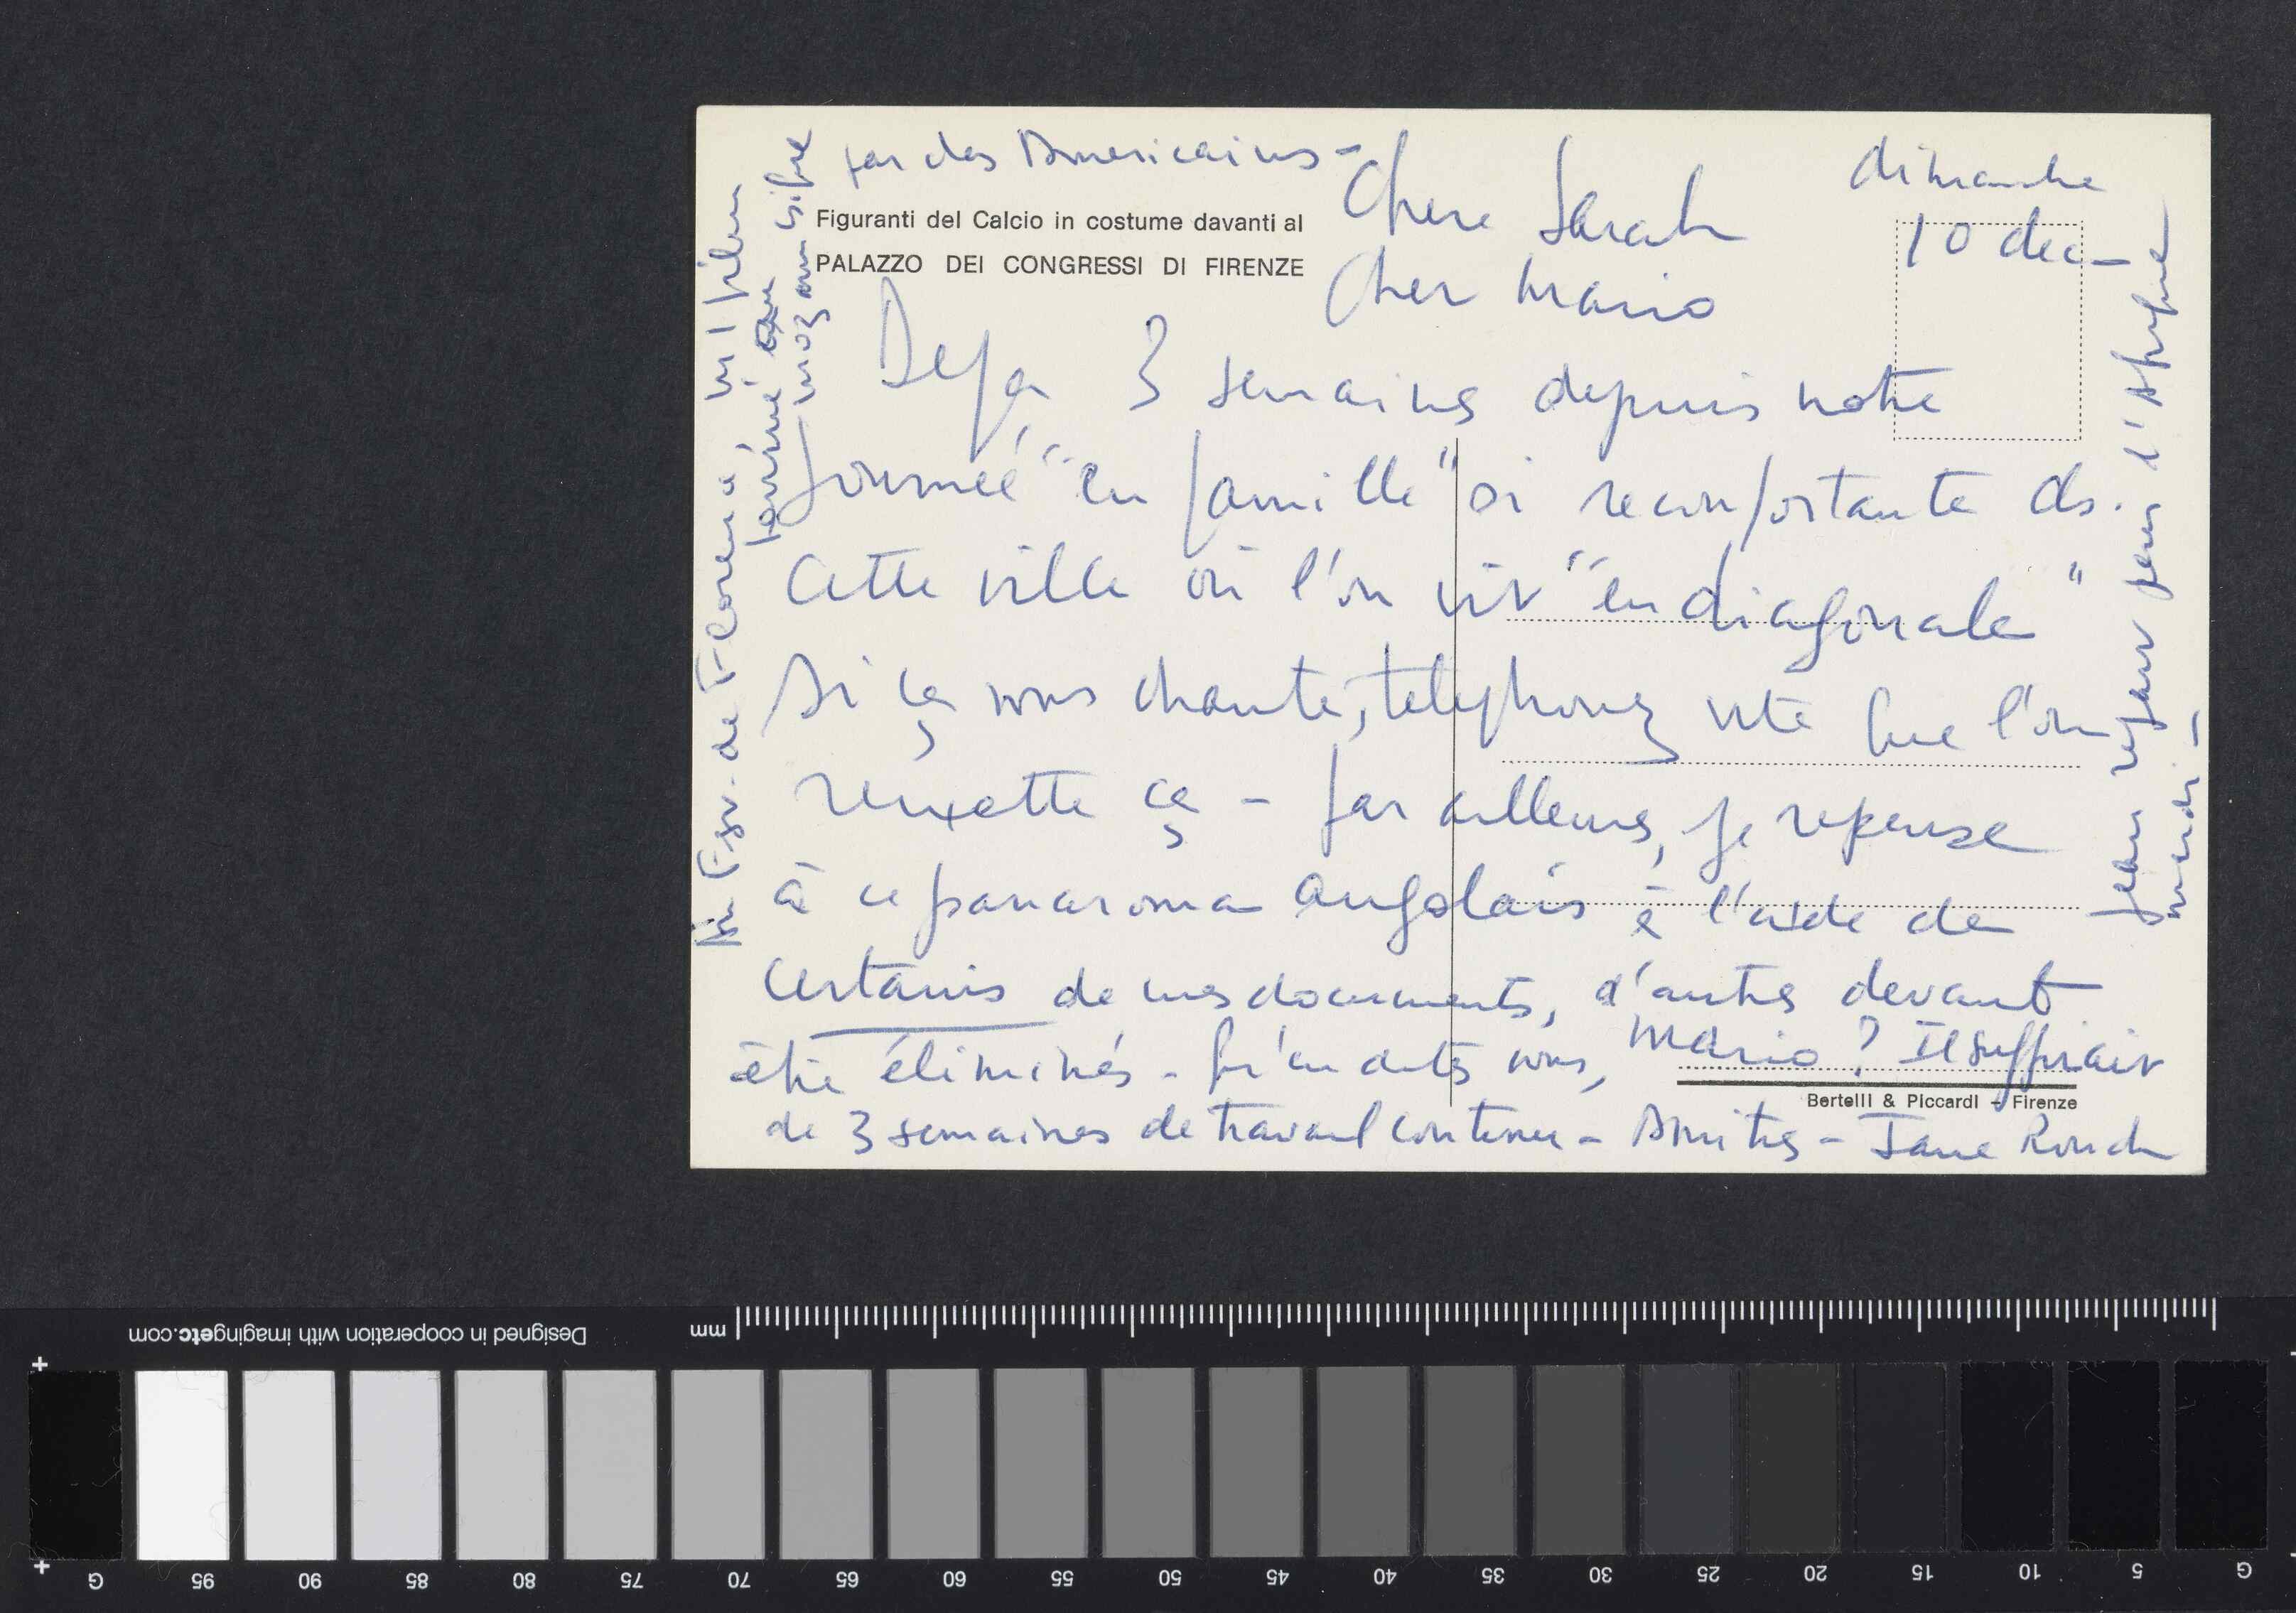 dimanche
10 dec -
Chere Sarah
Cher Mario
Deja 3 semaines depuis notre
journée "en famille" si reconfortante ds.
cette ville où l'on vit "en diagonale"
Si ça vous chante, telephonez vite que l'on
remette ça - Par ailleurs, je repense
à ce panaroma angolais à l'aide de
certains de mes documents, d'autres devant
être éliminés - Qu'en dites vous, Mario ? Il suffirait
de 3 semaines de travail contenu - Amities - Jane Rouch
Jean repart pour l'Afrique
mardi -
Au Fsv. de Florence, vu 1 film
terminé au
Mozambique
par des Americains -
Figuranti del Calcio in costume davanti al
PALAZZO DEI CONGRESSI DI FIRENZE
Bertelli & Piccardi - Firenze
Designed in cooperation with imagingetc.com
mm
G 95 90 85 80 75 70 65 60 55 50 45 40 35 30 25 20 15 10 5 G